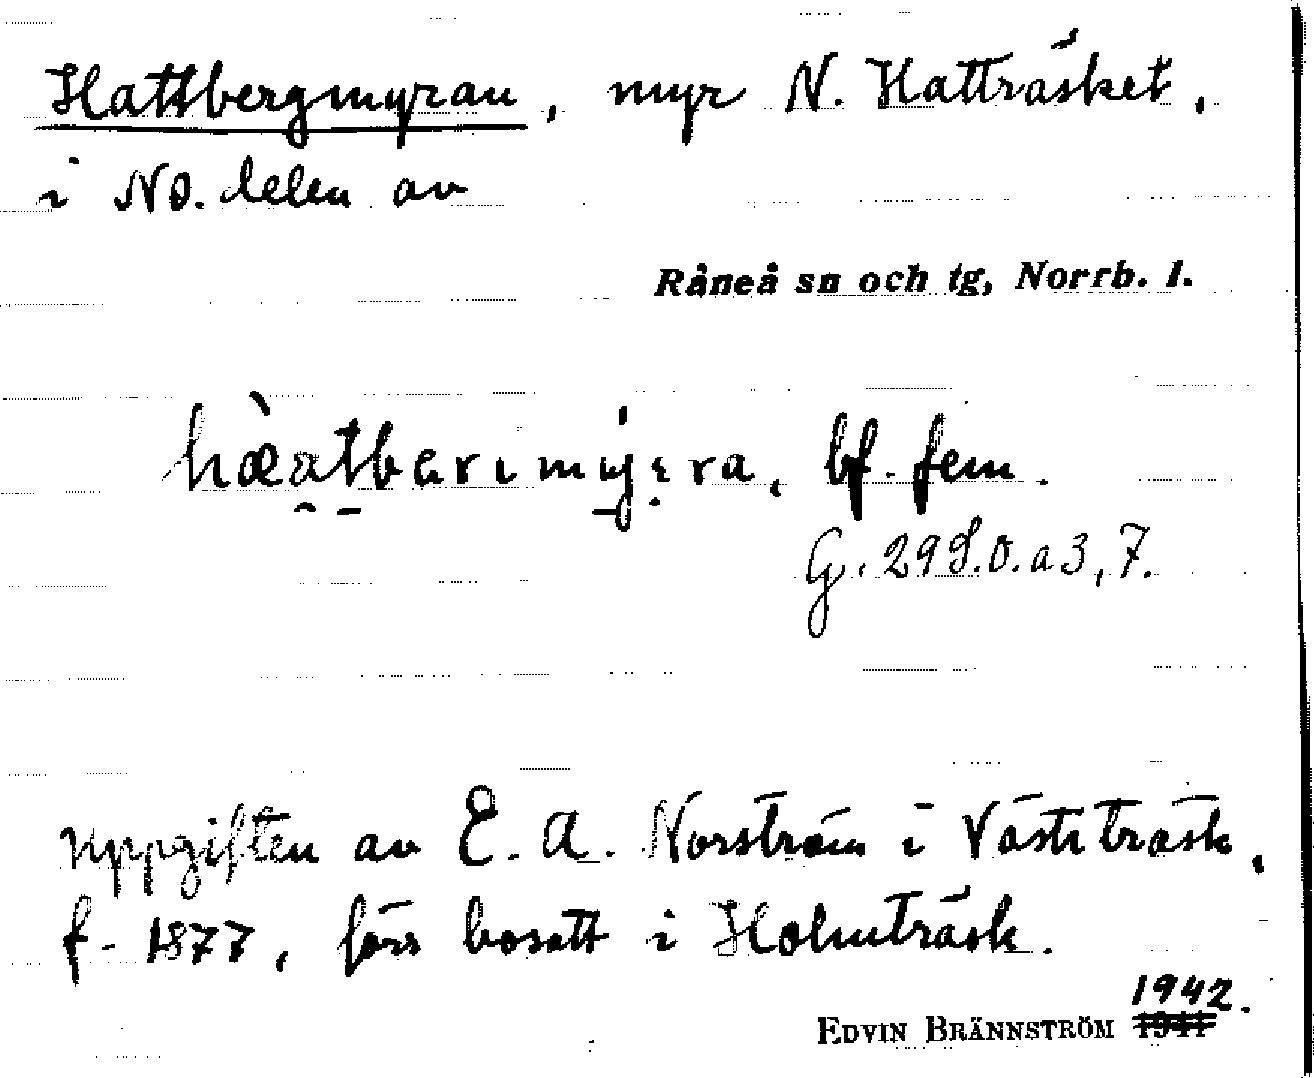 Hattbergmyran, myr N. Hatträsket,
i NO. delen av
Råneå sn och tg, Norrb. l.
bf. fem.
G. 29 S.O. a 3, 7.
Uppgiften av E. A. Norström i Västiträsk,
f. 1877, förr bosatt i Holmträsk.
1942.
EDVIN BRÄNNSTRÖM 1941